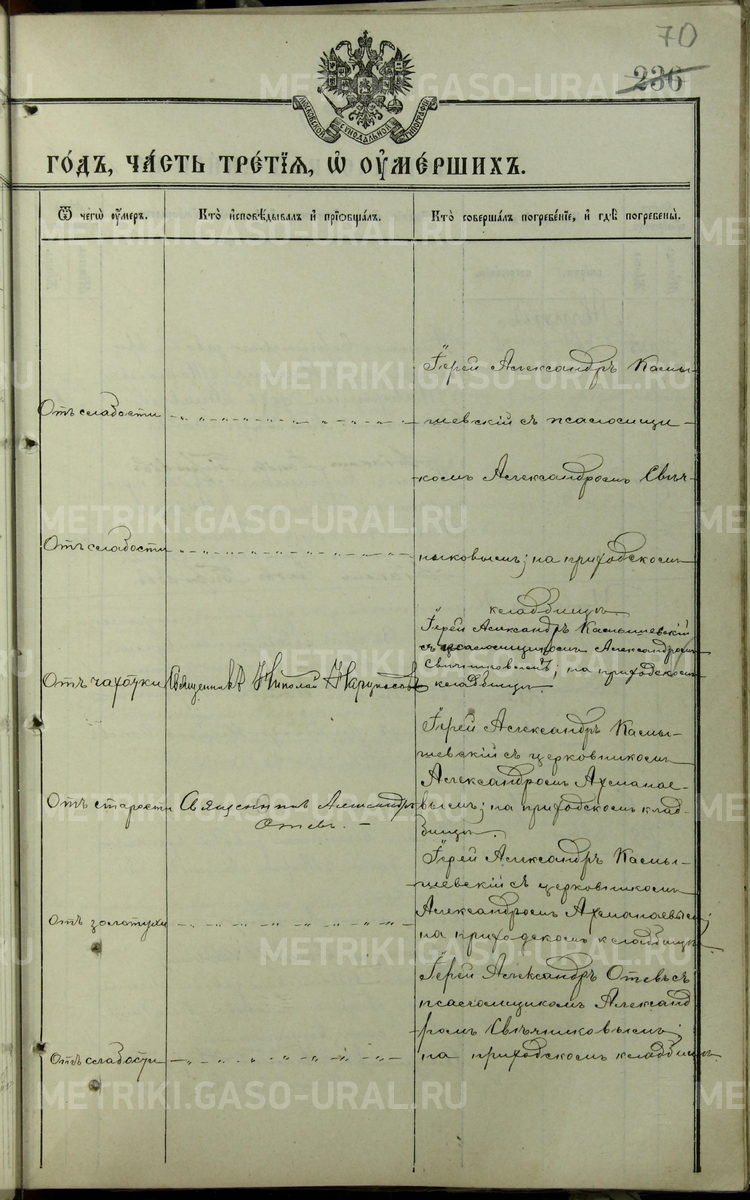 70
236
МОСКОВСКОЙ СѴНОДАЛЬНОЙ ТИПОГРАФІИ
ГО́ДЪ, ЧА́СТЬ ТРЕ́ТЇЯ, Ѡ҆ ОУ҆МЕ́РШИХЪ.
Ѿ чегѡ̀ оу҆́меръ.
Кто̀ и҆сповѣ́дывалъ и҆ прїѡбща́лъ.
Кто̀ соверша́лъ погребе́нїе, и҆ гдѣ̀ погребены̀.
Отъ слабости
Іерей Александръ Камы-
шевскій съ псаломщи-
комъ Александромъ Свѣч-
Отъ слабости
никовымъ; на приходскомъ
кладбищѣ
Отъ чахотки
Священникъ Николай
Іерей Александръ Камышевскій
съ псаломщикомъ Александромъ
Свѣчниковымъ; на приходскомъ
кладбищѣ
Отъ старости
Священникъ Александръ
Отевъ.
Іерей Александръ Камы-
шевскій съ церковникомъ
Александромъ Ахманае-
вымъ; на приходскомъ клад-
бищѣ.
Отъ золотухи
Іерей Александръ Камы-
шевскій съ церковникомъ
Александромъ Ахманаевымъ;
на приходскомъ кладбищѣ
Отъ слабости
Іерей Александръ Отевъ съ
псаломщикомъ Александ
ромъ Свѣчниковымъ;
на приходскомъ кладбищѣ
METRIKI.GASO-URAL.RU